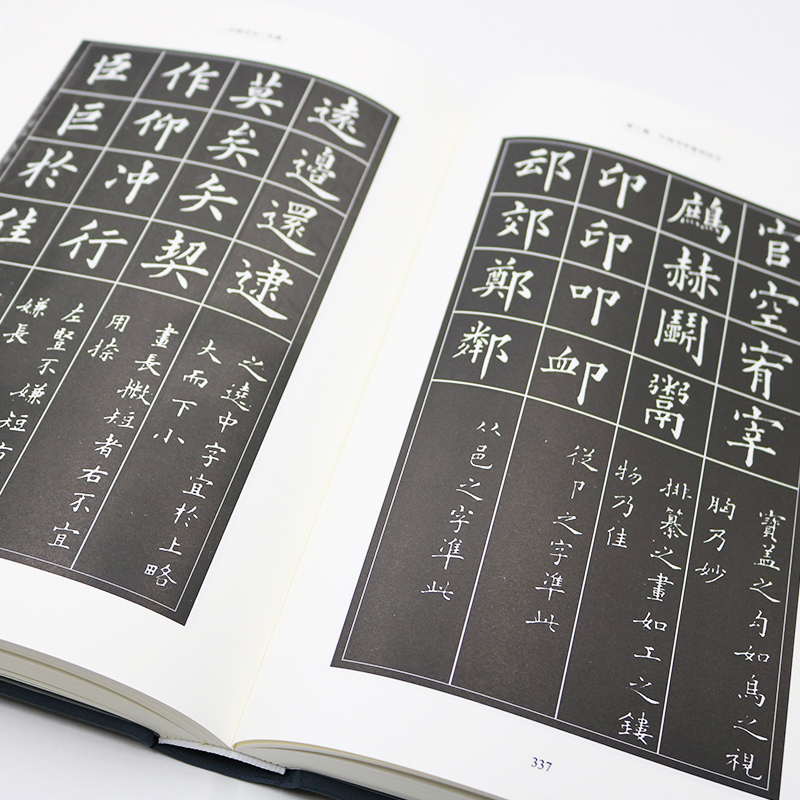 遠邊還逮
之遶中字宜於上略
大而下小
莫矣矢契
畫長撇短者右不宜
用捺
作仰冲行
左豎不嫌短右
嫌長
臣巨於佳
官空宥宰
寶盖之勾如鳥之視
胸乃妙
鷓赫鬭鬻
排纂之畫如工之鏤
物乃佳
印印叩卹
從卩之字準此
郊鄭鄰
从邑之字準此
337